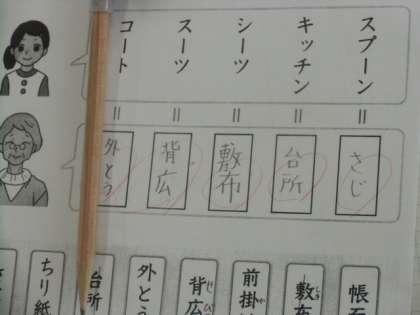 スプーン
キッチン
シーツ
スーツ
コート
=
=
=
=
=
さじ
台所
敷布
背広
外とう
帳面
敷布
しき
前掛け
か
背広
せびろ
外とう
台所
ちり紙